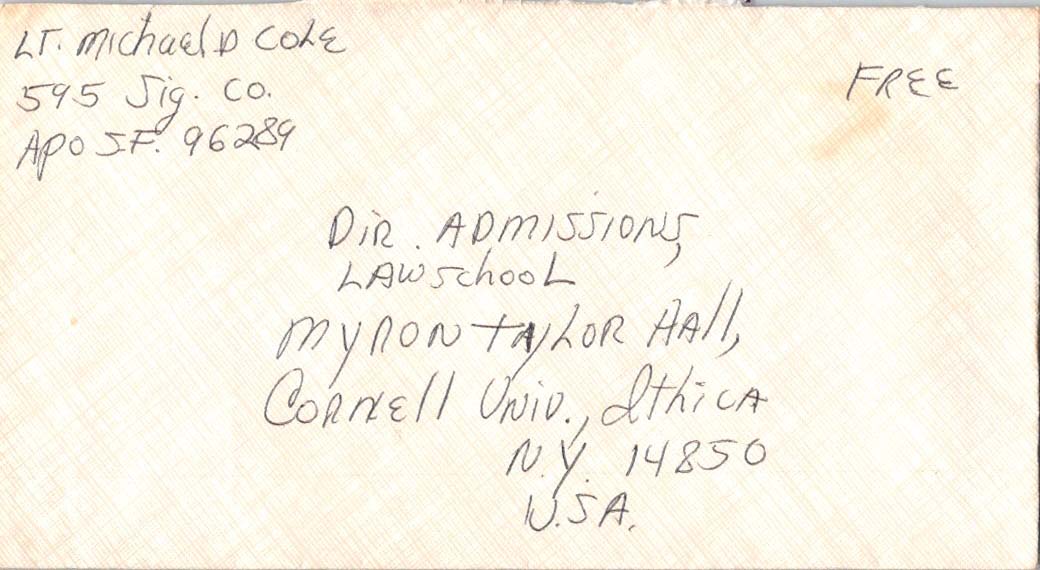 LT. Michael D COLE
595 Sig. Co.
APO S.F. 96289
FREE
DIR. ADMISSIONS,
LAW School
MYRON TAYLOR HAll,
CORNEll UNIV., IthiCA
N.Y. 14850
U.S.A.